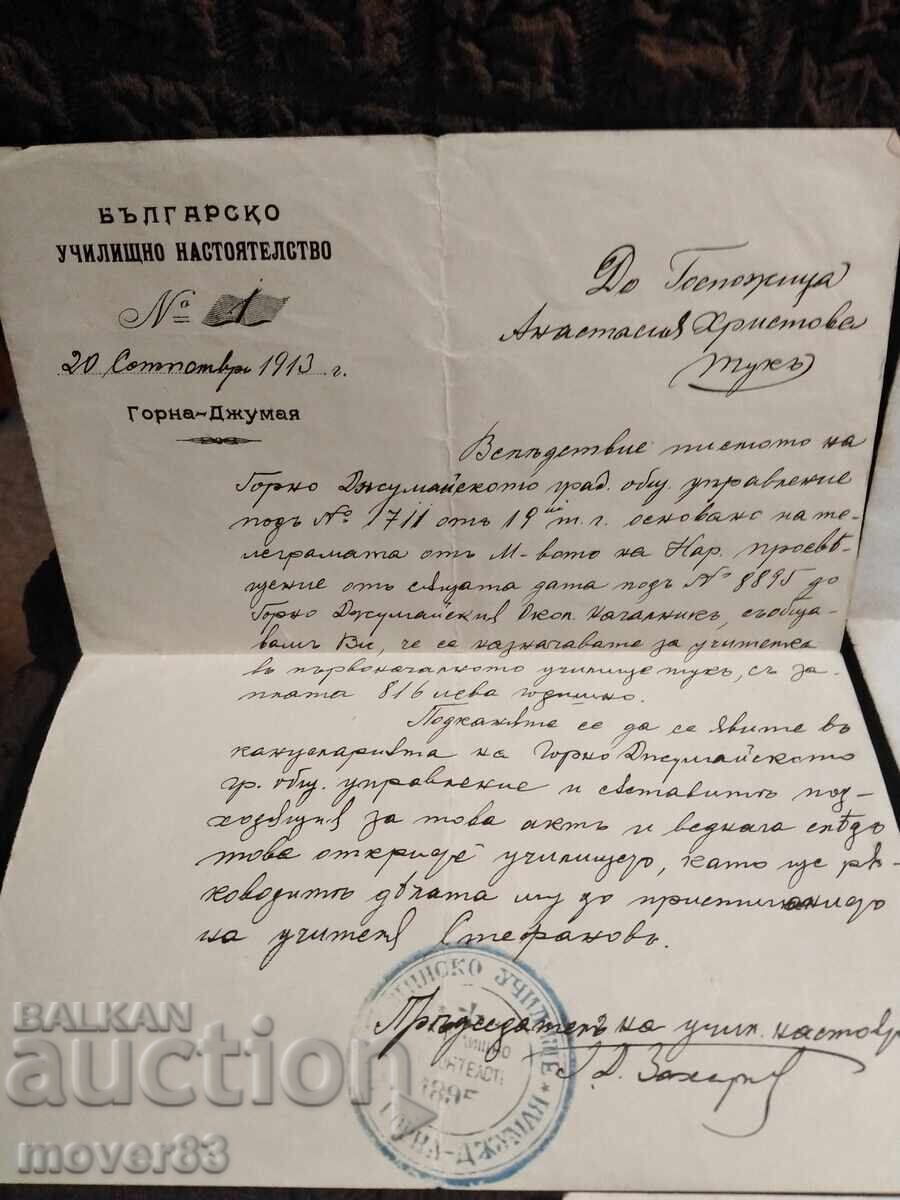 БЪЛГАРСКО
УЧИЛИЩНО НАСТОЯТЕЛСТВО
№ 1
20 Септемврий 1913 г.
ГОРНА-ДЖУМАЯ
До Госпожица
Анастасия Христова
Тукъ
Вслѣдствие писмото на
Горно Джумайското град. общ. управление
подъ № 1711 отъ 19 т. г. основано на те-
леграмата отъ М-вото на Нар. просвѣ-
щение отъ сѫщата дата подъ № 8895 до
Горно Джумайския Окол. Началникъ, съобща-
вамъ Ви, че се назначавате за учителка
въ първоначалното училище тукъ, съ за-
плата 816 лева годишно.
Подканяте се да се явите въ
канцеларията на Горно Джумайското
гр. общ. управление и съставитъ под-
ходящия за това актъ и веднага слѣдъ
това откриде училищедо, като ще рѫ-
ководитъ дѣлата му до пристиганидо
на учителя Стефановъ.
Прѣдседателъ на учил. настоя
Д. Захариев
УЧИЛИЩЕ
1895
ГОРНА-ДЖУМАЯ
BALKAN
auction
mover83